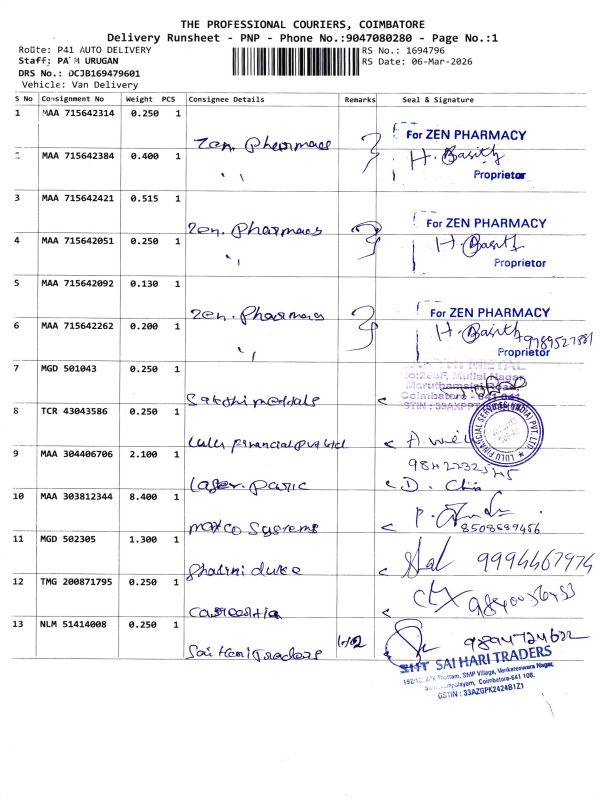 THE PROFESSIONAL COURIERS, COIMBATORE
Delivery Runsheet - PNP - Phone No.:9047080280 - Page No.:1
Route: P41 AUTO DELIVERY
RS No.: 1694796
Staff: URUGAN
RS Date: 06-Mar-2026
DRS No.: DCJB169479601
Vehicle: Van Delivery
S No Consignment No Weight PCS Consignee Details Remarks Seal & Signature
1 MAA 715642314 0.250 1
Zen. Pharmacs
For ZEN PHARMACY
H. Basith
Proprietor
2 MAA 715642384 0.400 1
3 MAA 715642421 0.515 1
Zen. Pharmacs
For ZEN PHARMACY
H. Basith
Proprietor
4 MAA 715642051 0.250 1
5 MAA 715642092 0.130 1
Zen. Pharmacs
For ZEN PHARMACY
H. Basith
9789527881
Proprietor
6 MAA 715642262 0.200 1
7 MGD 501043 0.250 1
METAL
Mullai Nagar
Coimbatore
8 TCR 43043586 0.250 1
Lulu financial pvt ltd
LULU FINANCIAL SERVICES (INDIA) PVT. LTD
9 MAA 304406706 2.100 1
10 MAA 303812344 8.400 1
maxco Systems
8508689456
11 MGD 502305 1.300 1
9994467974
12 TMG 200871795 0.250 1
13 NLM 51414008 0.250 1
Sai Hari Traders
9894724622
SHT SAI HARI TRADERS
Thottam, SMP Village, Venkateswara Nagar,
Coimbatore-641 108.
GSTIN : 33AZGPK2424B1Z1